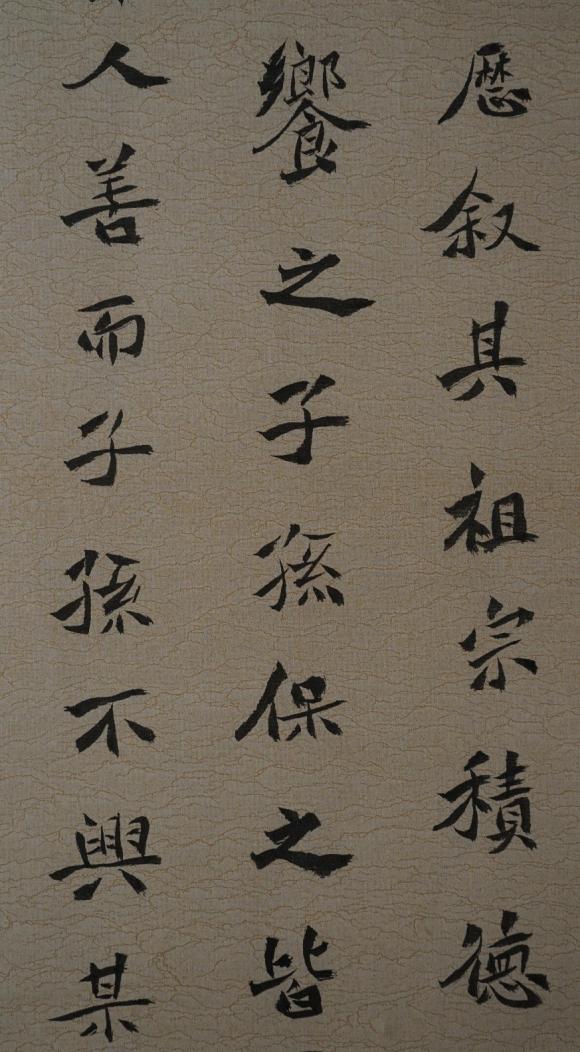 歷叙其祖宗積德
饗之子孫保之皆
人善而子孫不興某